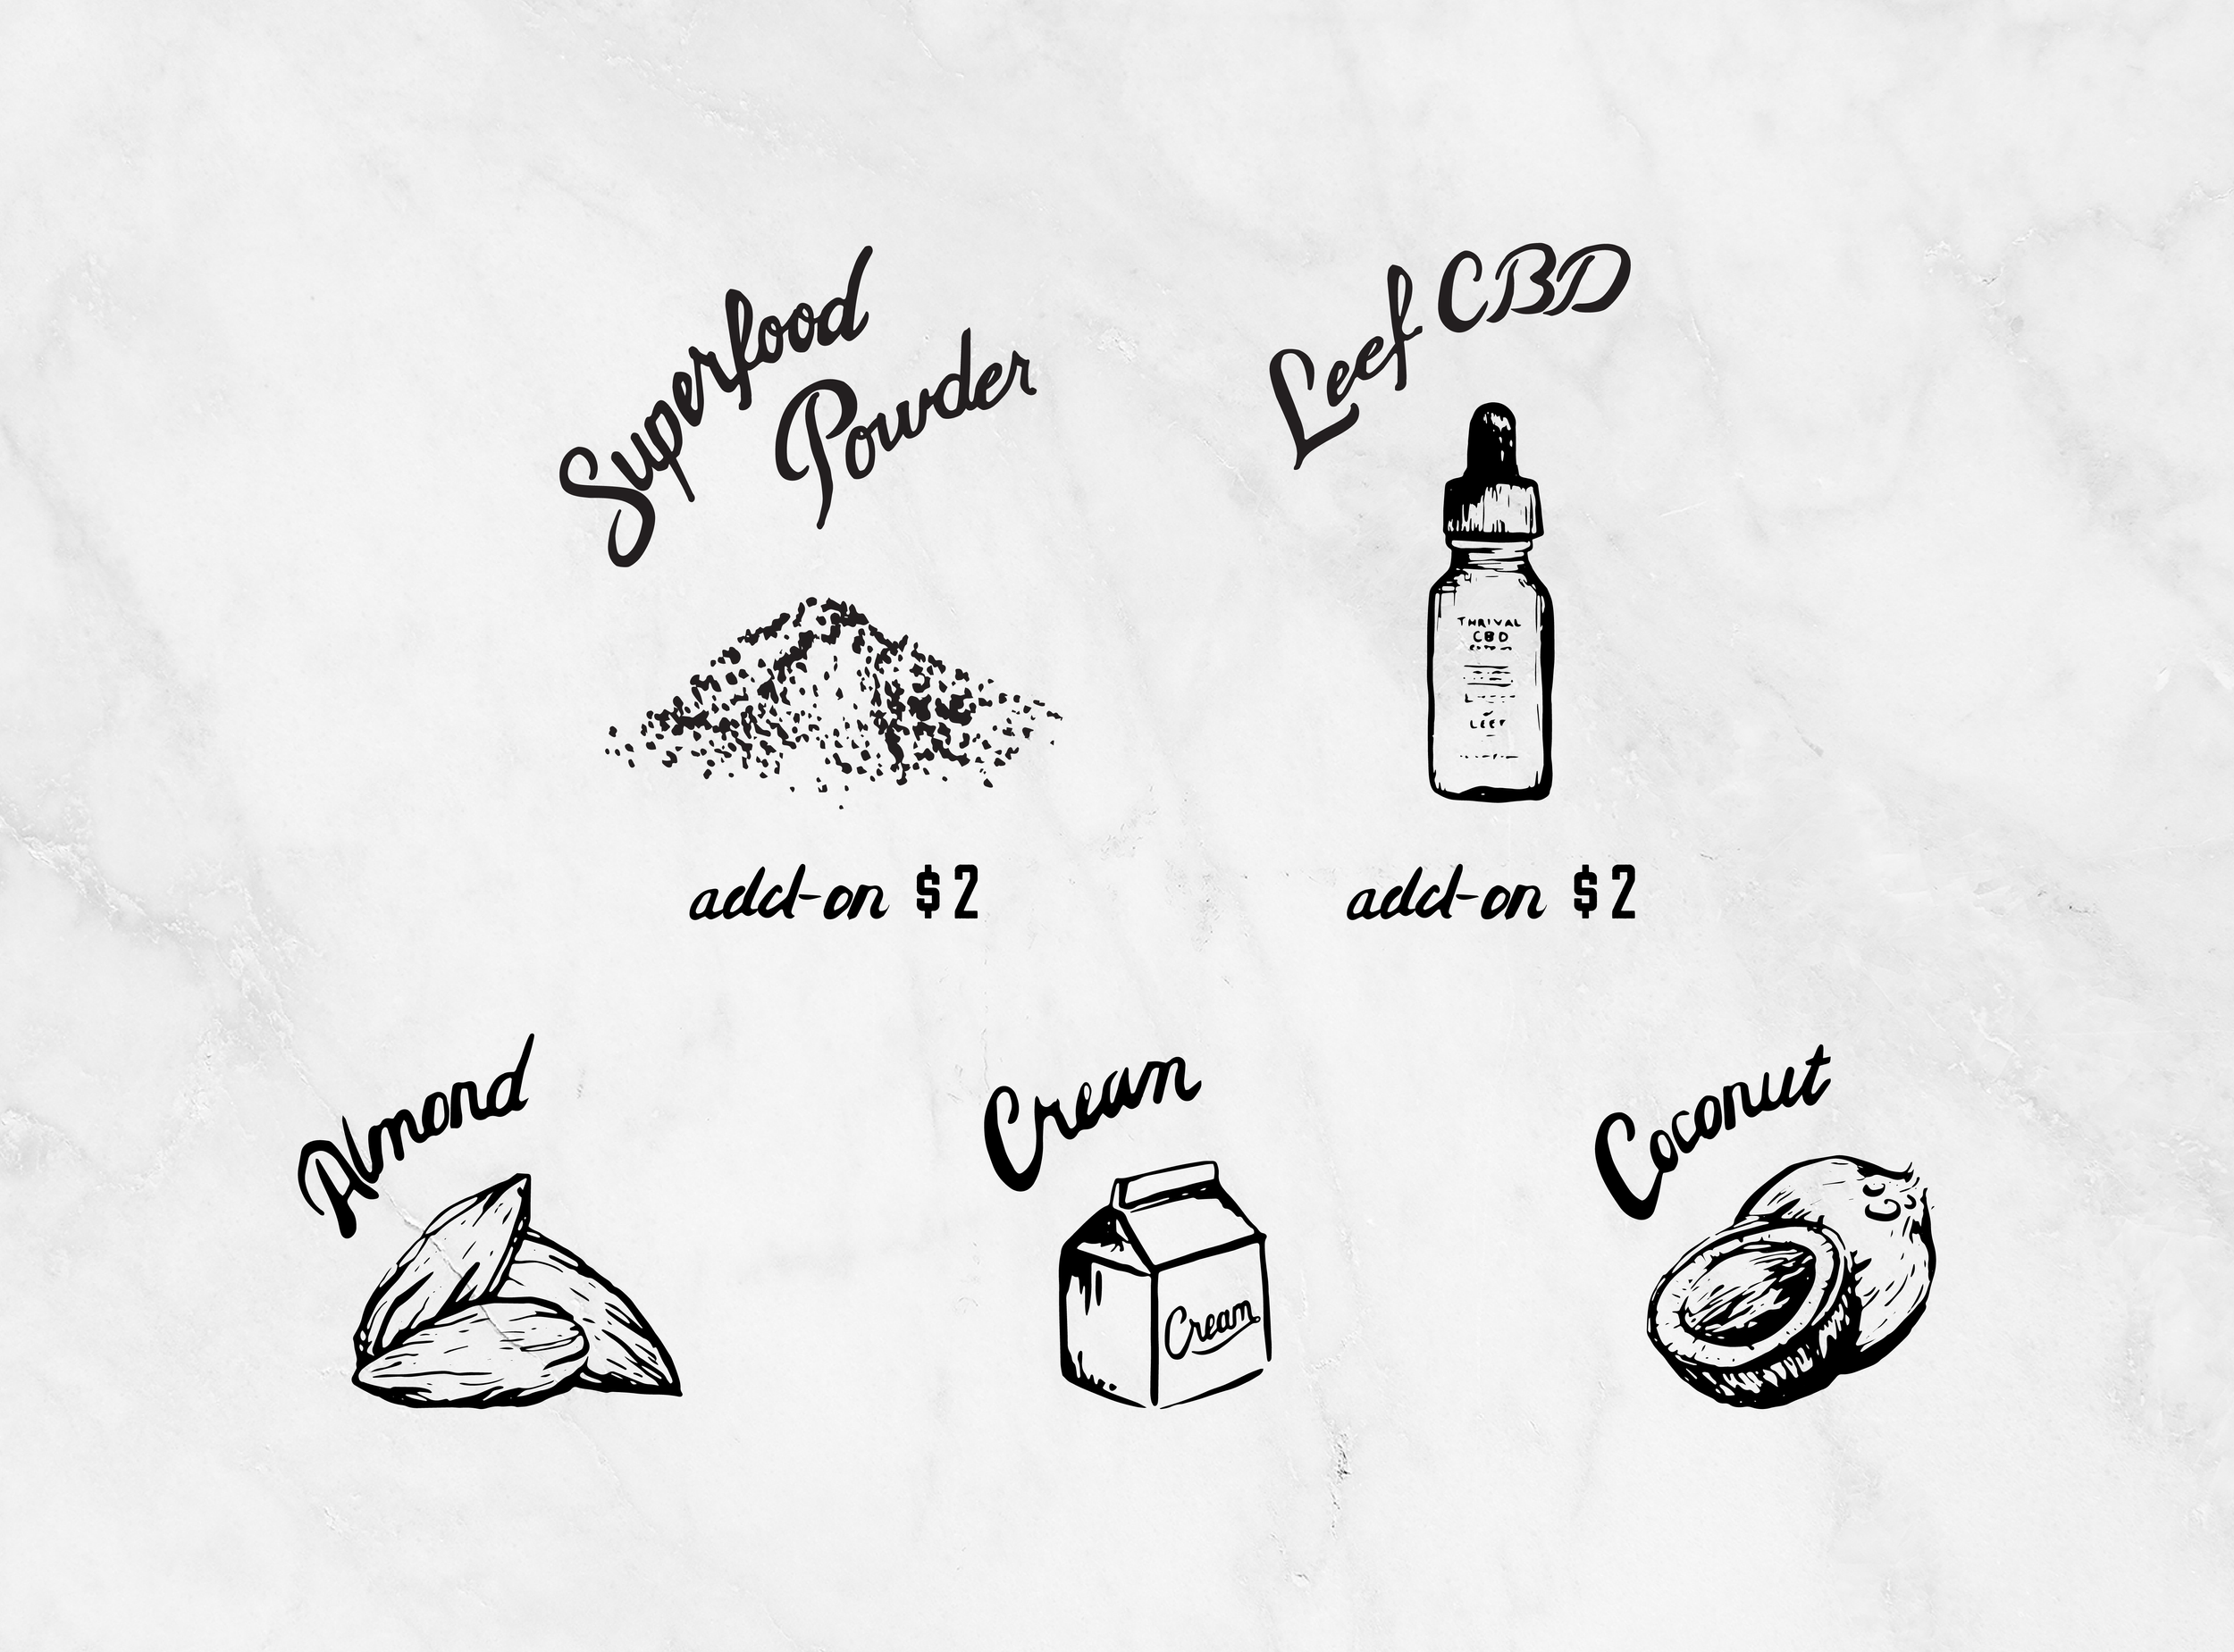 Superfood
Powder
Leef CBD
THRIVAL
CBD
LEEF
add-on $2
add-on $2
Almond
Cream
Coconut
Cream